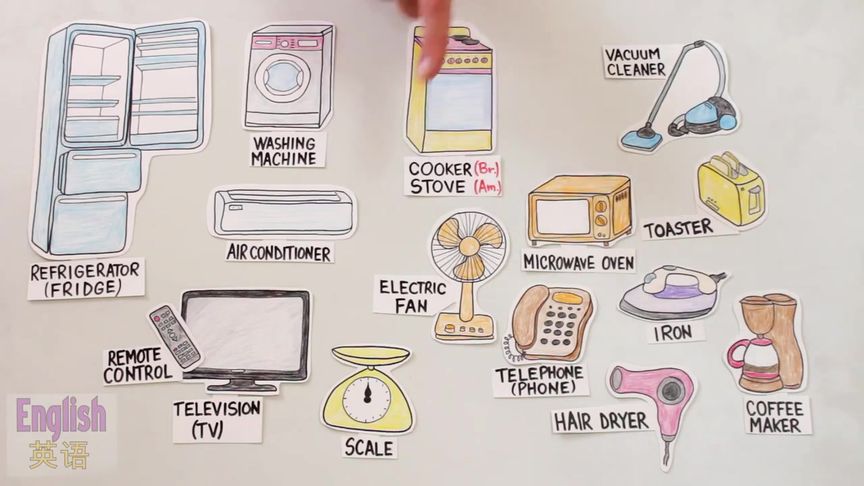 VACUUM
CLEANER
WASHING
MACHINE
COOKER (Br.)
STOVE (Am.)
TOASTER
AIR CONDITIONER
MICROWAVE OVEN
REFRIGERATOR
(FRIDGE)
ELECTRIC
FAN
IRON
REMOTE
CONTROL
TELEPHONE
(PHONE)
TELEVISION
(TV)
HAIR DRYER
COFFEE
MAKER
SCALE
English
英语